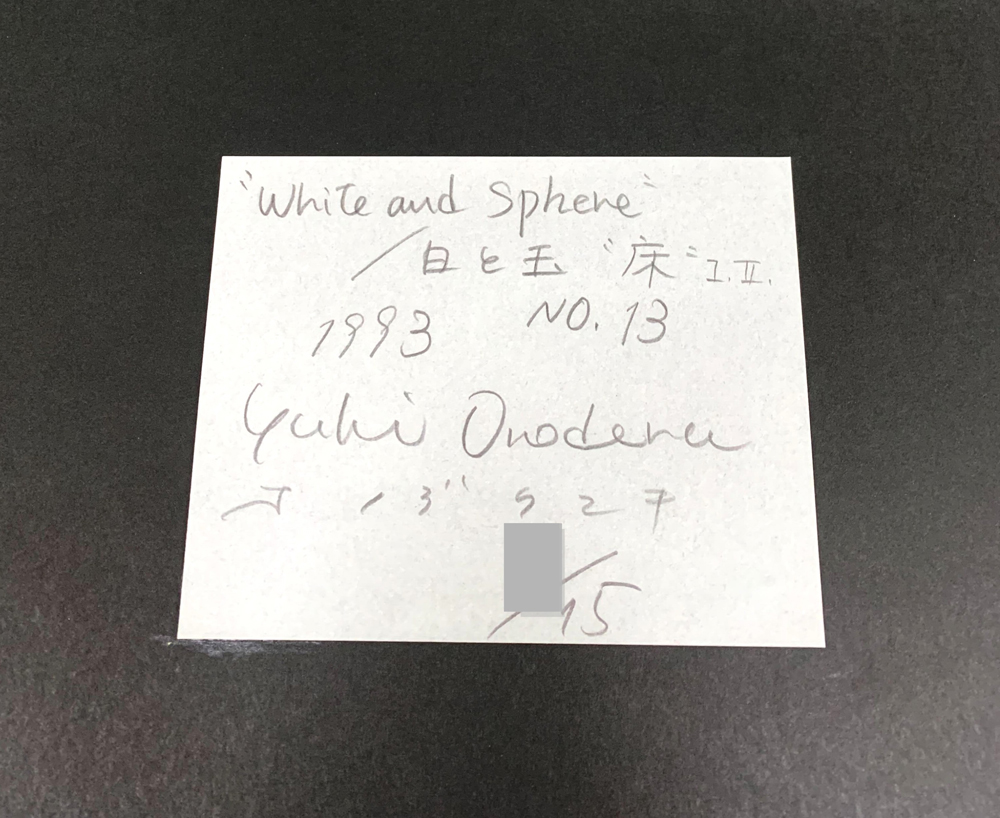 "White and Sphere"
／白と玉 "床" I.II.
1993 NO.13
Yuki Onodera
オノデラユキ
/15